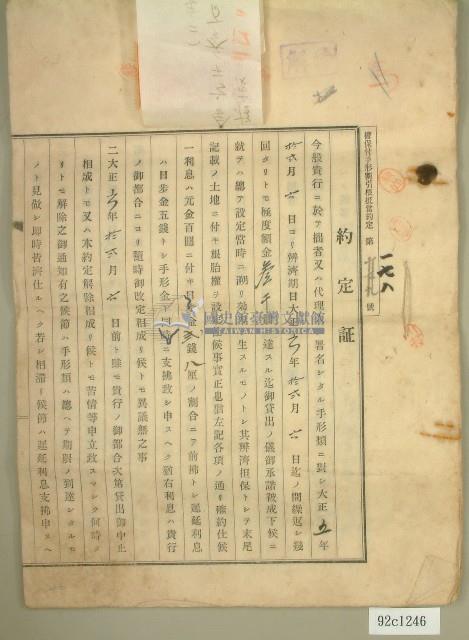 擔保付手形割引根抵當約定 第一七八號
約定証
今般貴行ニ於テ拙者又ハ代理 署名シタル手形類ニ對シ大正五年
拾貳月六日ヨリ辨濟期日大正六年拾貳月六日迄ノ間繰返シ幾
回タリトモ極度額金參千 達スル迄御貸出ノ儀御承諾被成下候ニ
就テハ總テ設定當時ニ溯リ効 生スルモノトシ其辨濟担保トシテ末尾
記載ノ土地ニ付キ根胎權ヲ設 候事實正也猶左記各項ノ通リ確約仕候
一利息ハ元金百圓ニ付キ日 金貳錢八厘ノ割合ニテ前拂トシ遲延利息
ハ日歩金五錢トシ手形金 支拂致シ申スヘク猶右利息ハ貴行
ノ御都合ニヨリ隨時御改定相成リ候トモ異議無之事
二大正六年拾貳月六日前ト雖モ貴行ノ御都合次第貸出御中止
相成トモ又ハ本約定解除相成リ候トモ苦情等申立致スマシク何時ノ
リトモ解除之御通知有之候節ハ手形類ハ總ヘテ期限ノ到達シタルモ
ノト見做シ即時皆濟仕ルヘク若シ相滯リ候節ハ遲延利息支拂申スヘ
國史館臺灣文獻館
92c1246